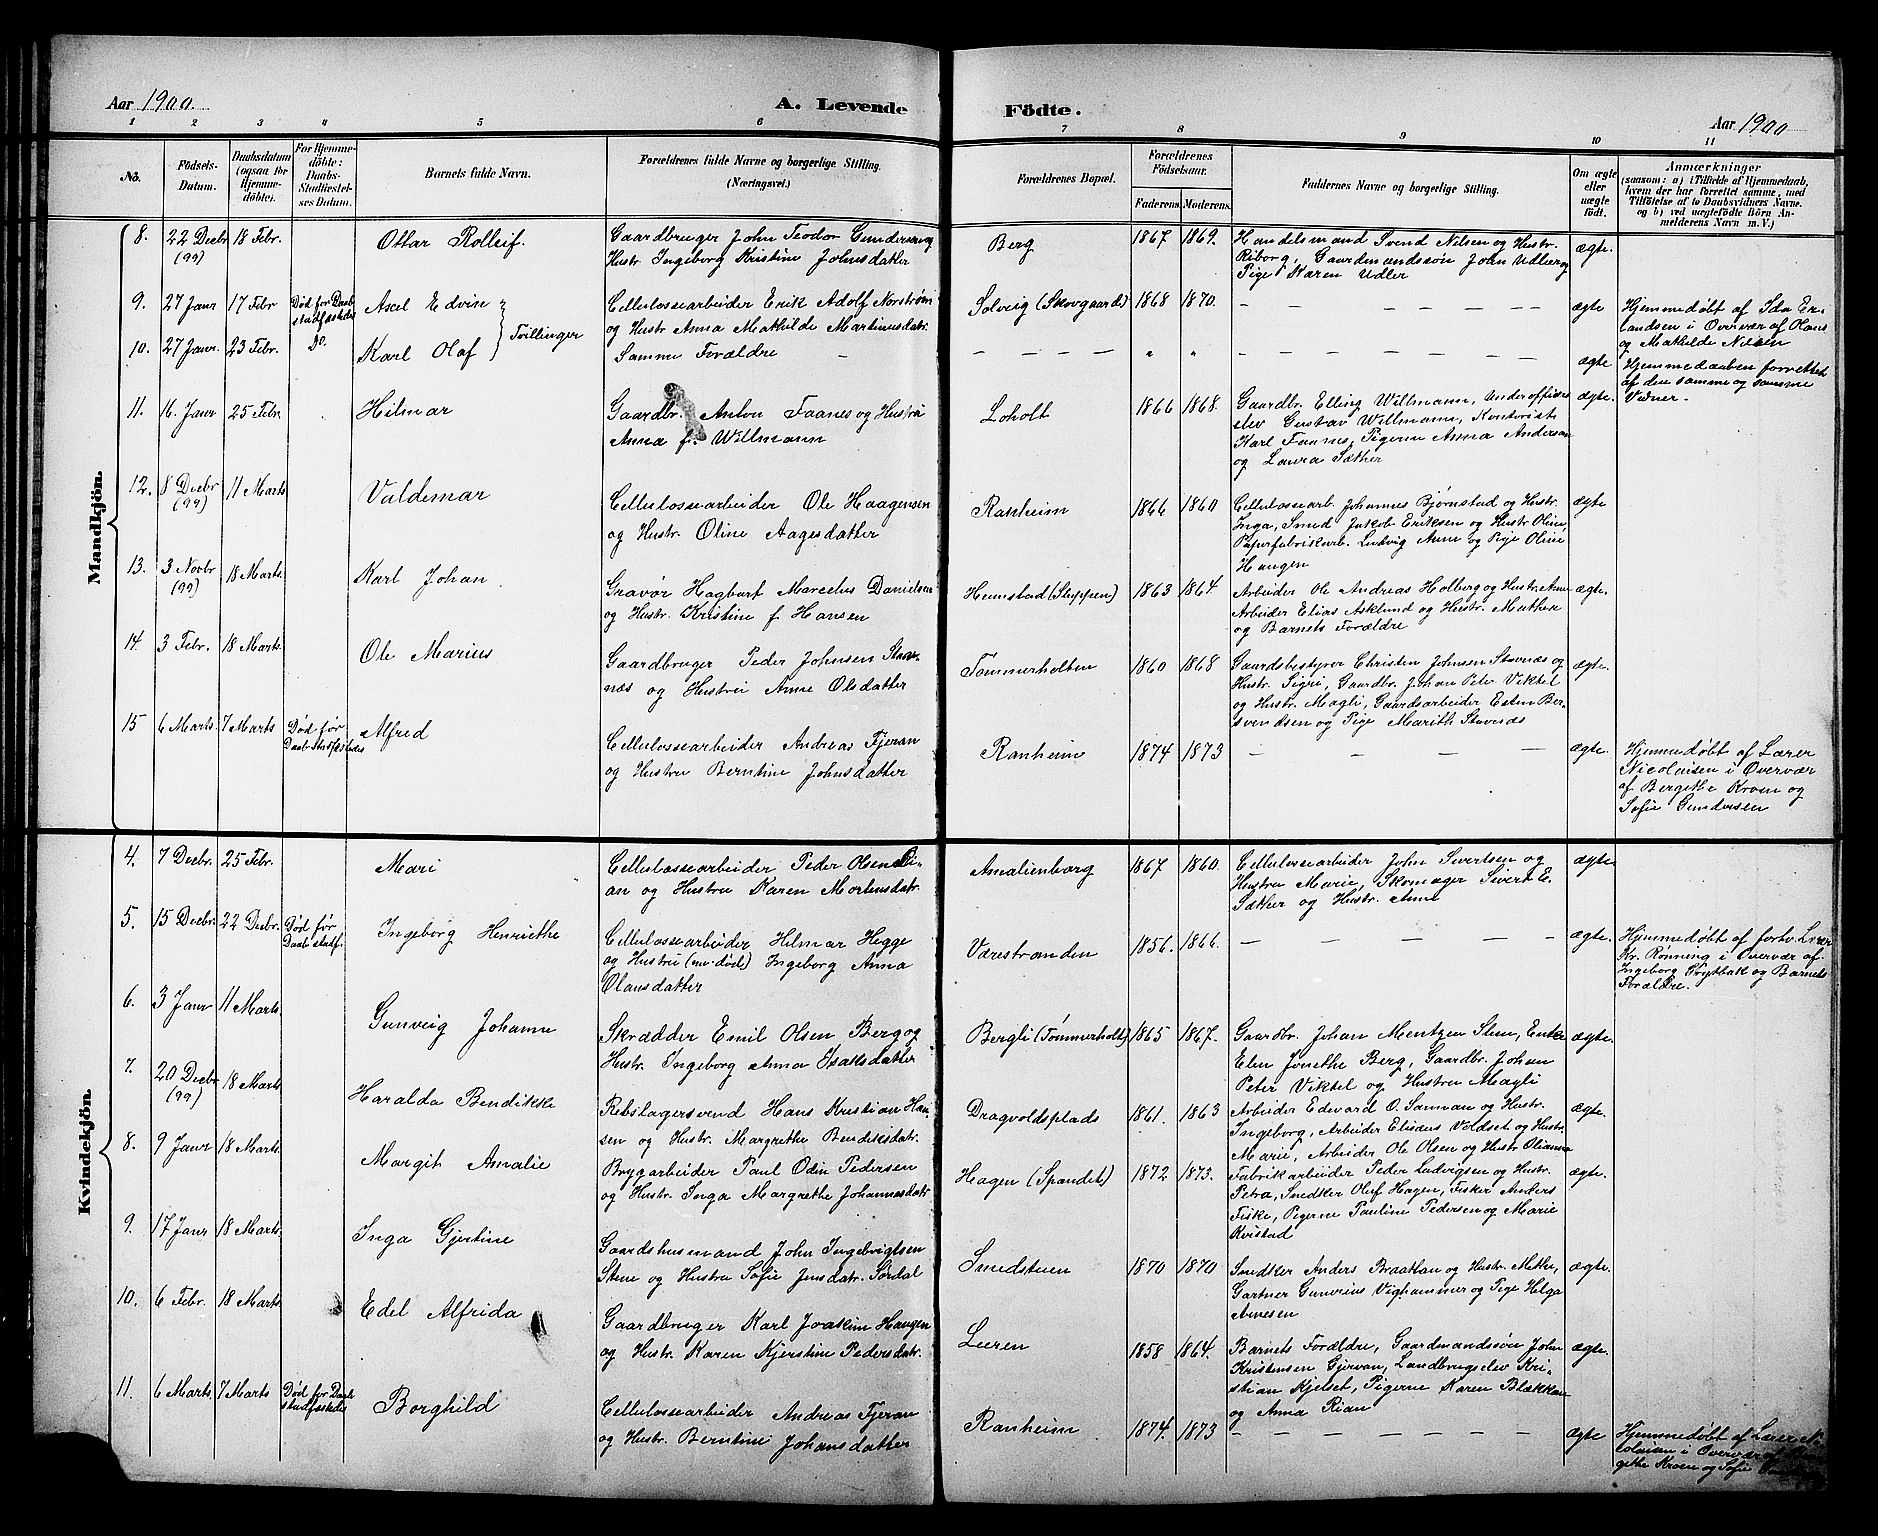 Aar 1900. A. Levende Födte. Aar 1900
1 2 3 4 5 6 7 8 9 10 11
No. Födsels-Datum. Daabsdatum (ogsaa for Hjemmedöbte). For Hjemmedöbte: Daabs-Stadfæstelses Datum. Barnets fulde Navn. Forældrenes fulde Navne og borgerlige Stilling. (Næringsvei.) Forældrenes Bopæl. Forældrenes Födselsaar. Faderens. Moderens. Faddernes Navne og borgerlige Stilling. Om ægte eller uægte födt. Anmærkninger (saasom: a) i Tilfælde af Hjemmedaab, hvem der har forrettet samme, med Tilföielse af to Daabsvidners Navne. og b) ved uægtefödte Börn Anmelderens Navn m. V.)
Mandkjön.
8. 22 Decbr (99) 18 Febr. Ottar Rolleif. Gaardbruger John Teodor Gundersen og
Hustr. Ingeborg Kristine Johnsdatter
Berg 1867. 1869. Handelsmand Svend Nilsen og Hustr.
Riborg, Gaardmandssøn John Udler og
Pige Karen Udler
ægte.
9. 27 Janr 17 Febr Død før Daab stadfæstedes Axel Edvin Tvillinger Cellulossearbeider Erik Adolf Norstrøm
og Hustr Anna Mathilde Martinusdatr.
Solveig (Skovgaard) 1868 1870. — — — — — ægte Hjemmedøbt af Ida Er-
landsen i Overvær af Olaus
og Mathilde Nilsen
10. 27 Janr. 23 Febr. Do. Karl Olaf Samme Forældre —
— — — — " " — — — — — — ægte Hjemmedaaben forrettet
af den samme og samme
Vidner.
11. 16. Janr 25 Febr. Hilmar Gaardbr. Anton Faanes og Hustru
Anna f. Willmann
Loholt 1866 1868. Gaardbr. Elling Willmann, Underofficers
elev Gustav Willmann, Kontorist
Karl Faanes, Pigerne Anna Anderson
og Laura Sæther
ægte.
12. 8 Decbr (99) 11 Marts Valdemar Cellulossearbeider Ole Haagensen
og Hustr. Oline Aagesdatter
Ranheim 1866 1860 Cellulossearb. Johannes Bjørnstad og Hustr.
Inga, Smed Jakob Eriksen og Hustr Oline,
Papirfabrikarb. Ludvig Aune og Pige Oline
Haugen
ægte
13. 3 Novbr (99) 18 Marts. Karl Johan. Gravør Hagbart Marcelus Danielsen
og Hustr. Kristine f. Hansen
Heimstad (Steppen) 1863 1864. Arbeider Ole Andreas Holberg og Hustr. Anne
Arbeider Elias Asklund og Hustr. Mathea
og Barnets Forældre
ægte.
14. 3 Febr. 18 Marts. Ole Marius Gaardbruger Peder Johnsen Stav-
næs og Hustru Anne Olsdatter
Tømmerholten 1860 1868 Gaardsbestyrer Christen Johnsen Stavnæs og
Hustr. Sigri, Gaardbr. Johan Peter Viktil
og Hustr. Magli, Gaardsarbeider Esten Ber-
svendsen og Pige Marith Stavnæs
ægte.
15 6 Marts. 7 Marts Død før Daab. Stadfæstedes Alfred Cellulossearbeider Andreas Fjeran
og Hustru Berntine Johnsdatter
Ranheim 1874 1873 — — — — ægte. Hjemmedøbt af Lærer
Nicolaisen i Overvær
af Bergithe Kroen og
Sofie Gundersen
Kvindekjön.
4. 7 Decbr. 25 Febr. Mari Cellulossearbeider Peder Olsen Ri-
an og Hustru Karen Mortensdatr.
Amalienborg 1867 1860. Cellulossearbeider John Sivertsen og
Hustru Marie, Skomager Sivert E.
Sæther og Hustr. Anne
ægte
5. 15 Decbr. 22 Decbr. Død før Daab. stadf. Ingeborg Henriethe Cellulossearbeider Hilmar Hegge
og Hustru (nu død) Ingeborg Anna
Olausdatter
Værestranden 1856. 1866. — — — — — ægte. Hjemmedøbt af forhv. Lærer
Kr. Rønning i Overvær af
Ingeborg og Barnets
Forældre.
6. 3 Janr 11 Marts. Gunveig Johanne Skrædder Emil Olsen Berg og
Hustr. Ingeborg Anna Isaksdatter
Bergli (Tømmerholt) 1865 1867. Gaardbr. Johan Mentzen Steen, Enke
Elen Jonethe Berg, Gaardbr. Johan
Peter Viktil og Hustru Magli
ægte.
7. 20 Decbr (99) 18 Marts Haralda Bendikke Rebslagersvend Hans Kristian Han-
sen og Hustr. Margrethe Bendiksdatr.
Dragvoldsplads 1861. 1863 Arbeider Edevard O. Sanman og Hustr.
Ingeborg, Arbeider Elisæus Veldset og Hustr.
Marie, Arbeider Ole Olsen og Hustr Olianna
ægte.
8. 9 Janr 18 Marts. Margit Amalie Brygarbeider Paul Odin Pedersen
og Hustr. Inga Margrethe Johannesdatr.
Hagen (Spandet) 1872 1873. Fabrikarbeider Peder Ludvigsen og Hustr.
Petra, Snedker Oluf Hagen, Fisker Anders
Fiske, Pigerne Pauline Pedersen og Marie
Kvistad
ægte.
9. 17 Janr 18 Marts. Inga Gjertine Gaardshusmand John Ingebrigtsen
Stene og Hustru Sofie Jensdatr. Sørdal
Smedstuen 1870 1870 Snedker Anders Braattan og Hustr. Mette,
Gartner Gunerius Vighammer og Pige Helga
Arnesen
ægte.
10. 6 Febr. 18 Marts. Edel Alfrida Gaardbruger Karl Joakim Haugen
og Hustr. Karen Kjerstine Pedersdatr.
Leeren 1858 1864. Barnets Forældre, Gaardmandssøn John
Kristensen Gjervan, Landbrugselev Kri-
stian Kjelset, Pigerne Karen Blækkan
og Anna Rian
ægte.
11. 6 Marts. 7 Marts Død før Daab stadfæstedes Borghild Cellulossearbeider Andreas Fjeran
og Hustr. Berntine Johansdatter
Ranheim 1874. 1873 — — — — — — ægte Hjemmedøbt af Lærer Ni-
colaisen i Overvær af Ber-
githe Kroen og Sofie